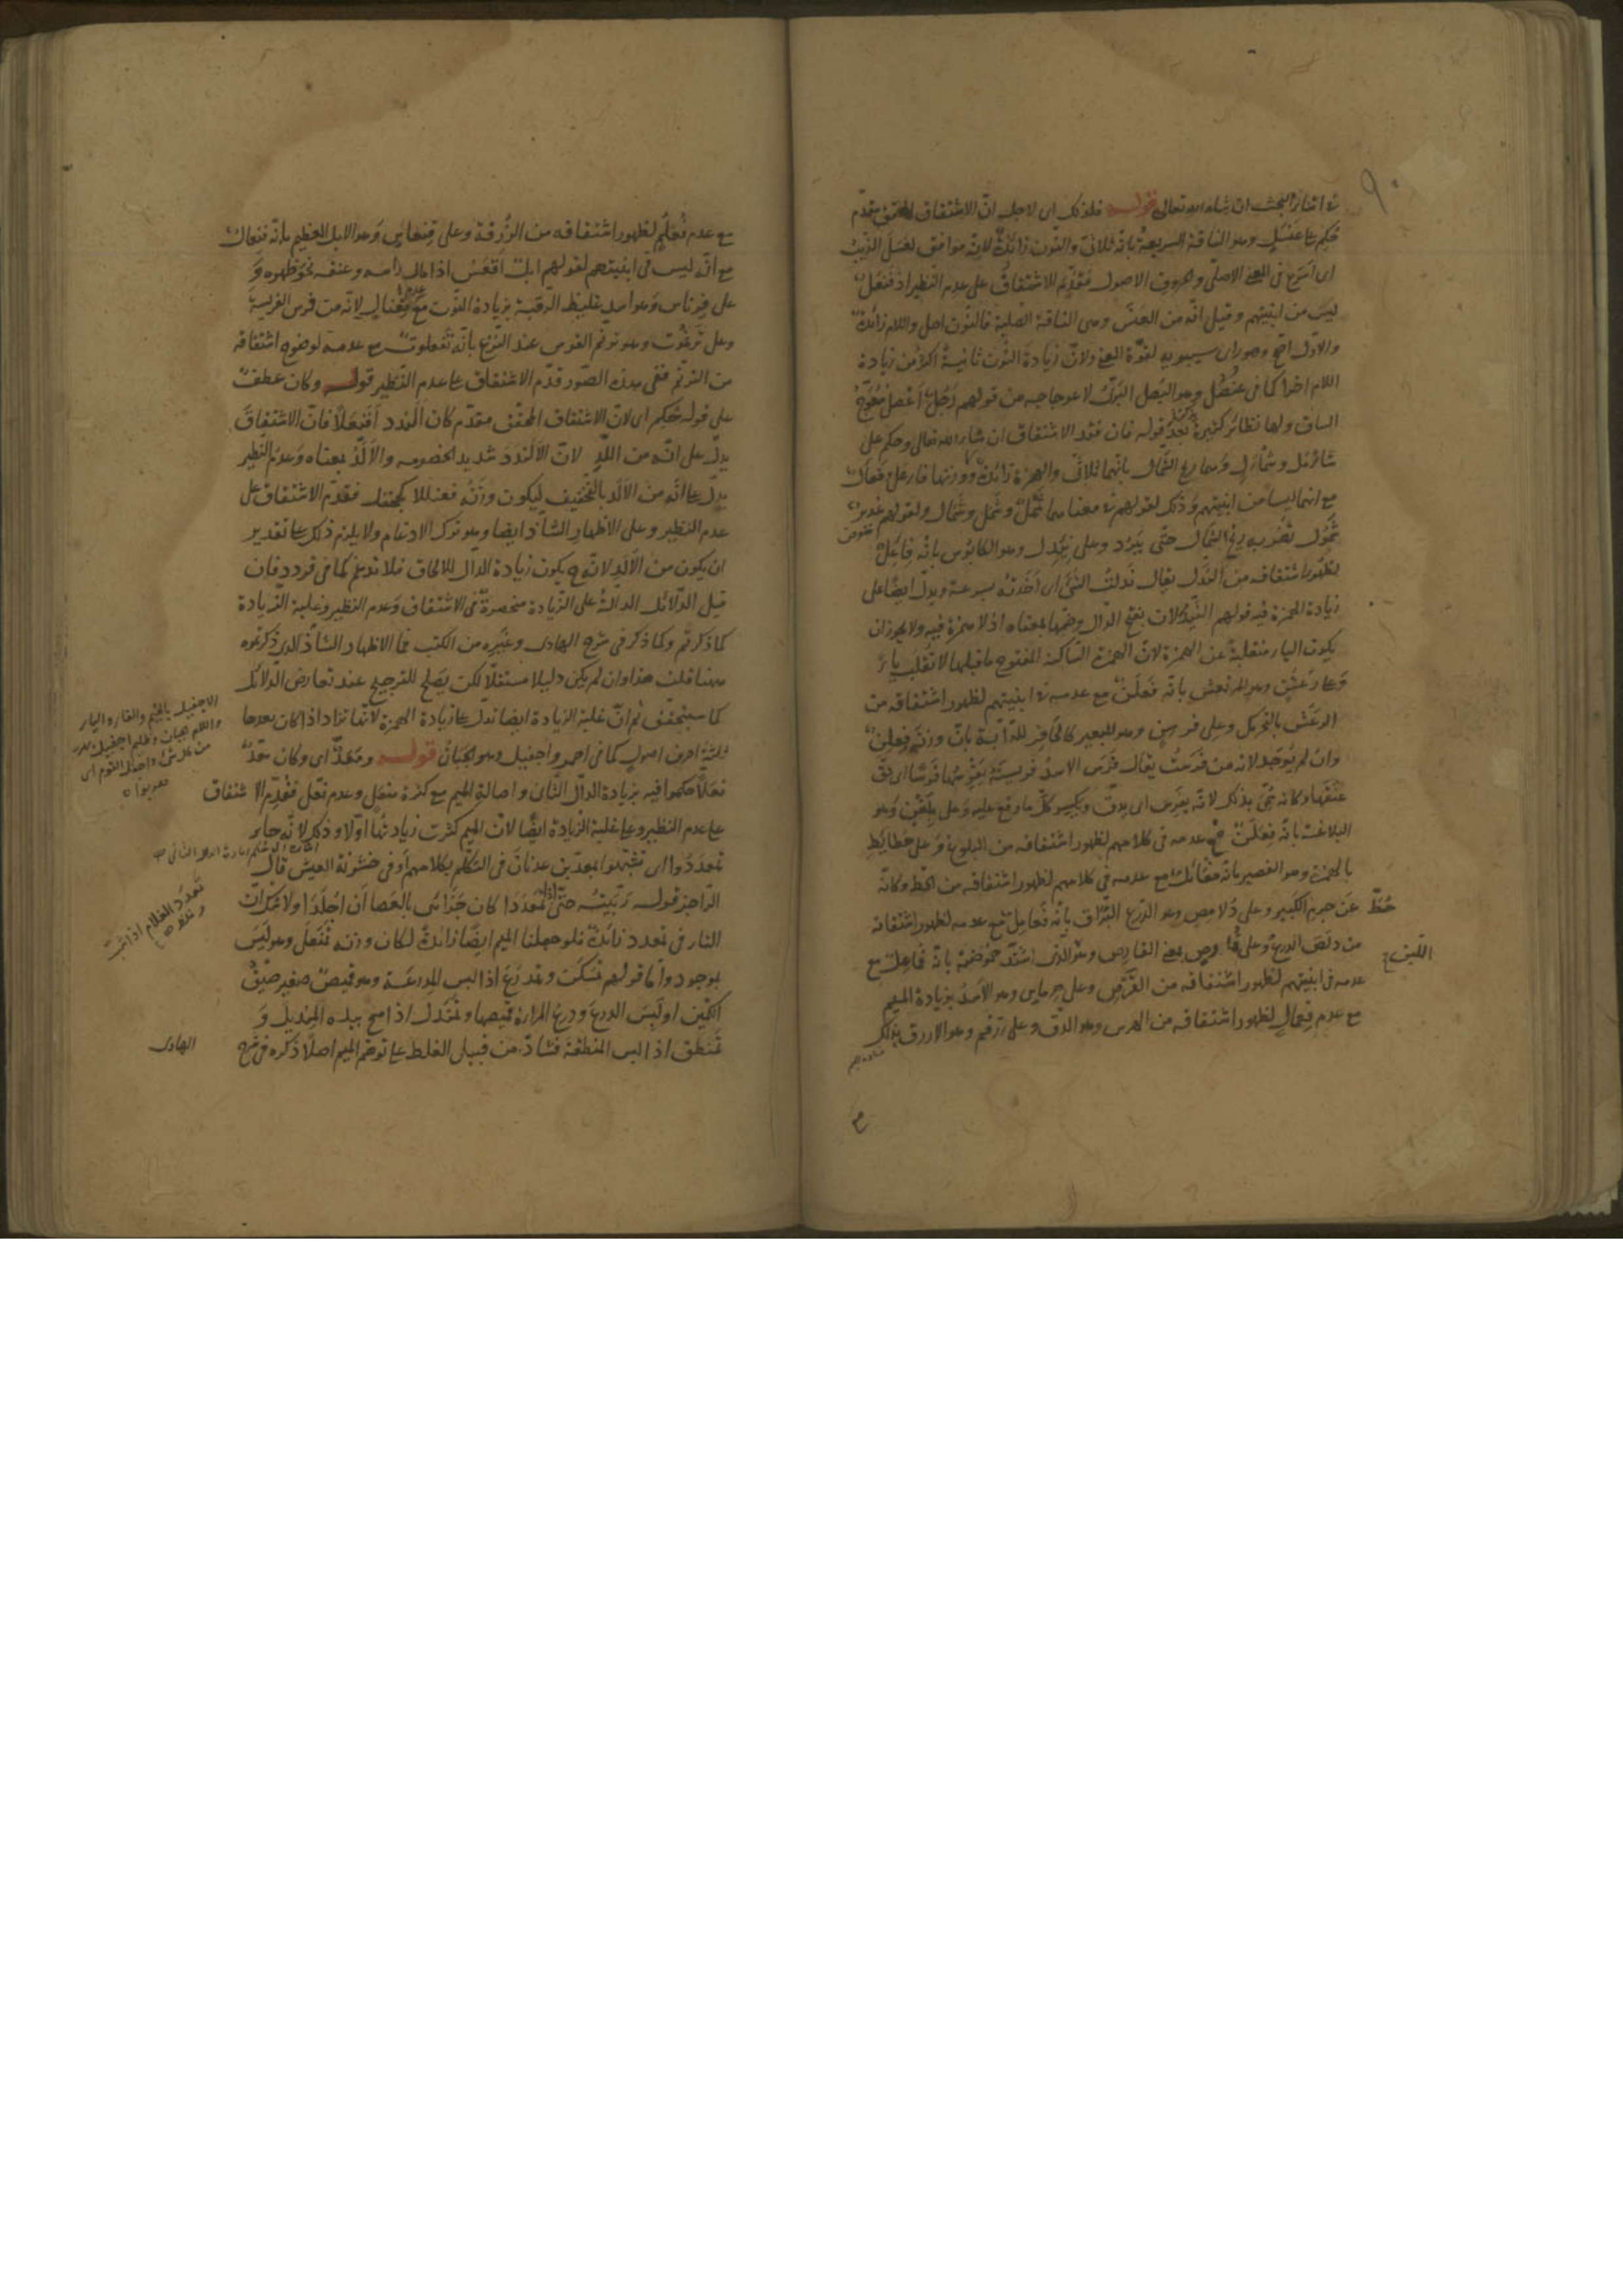 في اثناء البحث ان شاء الله تعالى قوله فلذلك اى لاجل انّ الاشتقاق المحقق مقدّم
حُكم على عَنْسَلٍ وهو الناقة السريعة بانه ثلاثىّ والنّون زائدةٌ لانه موافق لعَسَلَ الذئبُ
اى اَسْرع فى المعنى الاصلىّ والحروف الاصول فقُدِّم الاشتقاق على عدم النظير اذ فَنْعَلٌ
ليسَ من ابنيتهم وقيل انّه من العَنْس وهى الناقة الصلبة فالنّون اصل واللام زائدة
والاول اصحّ وهو راى سيبويه لقوّة المعنى ولانّ زيادة النّون ثانيةً اكثرُ من زيادة
اللام اخرًا كما فى عُنْصُل وهو البَصل البَرّىّ لاعوجاجه من قولهم رَجُلٌ اَعْصَلُ مُعْوَجُّ
الساق ولها نظائر كثيرة قوله فان فُقد الاشتقاق ان شاء الله تعالى وحكم على
شَأْمَل وشَمْأَل وهما ريح الشّمال بانّهما ثلاثىّ والهمزة زائدة ووزنهما فَأْعَل وفَعْأَل
مع انهما ليسا من ابنيتهم وذلك لقولهم فى معناهما شَمْلٌ وشَمَل وشَمال ولقولهم غدير
مشمُول تضربه ريح الشمال حتّى يَبْرُد وعلى نِئْدِل وهو الكابوُس بانّه فِأْعِل
لظهور اشتقاقه من النَّدْل يقال نَدَلْتُ الشئَ اى اَخَذتُه بسرعة ويدل ايضًا على
زيادة الهمزة فيه قولهم النَّيْدُلان بفتح الدّال وضمّها بمعناه اذ لا همزة فيه ولا يجوز ان
يكون الياء منقلبةً عن الهمزة لانّ الهمزة السّاكنة المفتوح ما قبلها لا تُقلَب ياءً
وَعلى رَعْشَنٍ وهو المرتعش بانّه فَعْلَنٌ مع عدمه فى ابنيتهم لظهور اشتقاقه من
الرعَش بالتحريك وعلى فِرْسِن وهو للبعير كالحافر للدّابّة بانّ وزنه فِعْلِنٌ
وان لم يُوجَد لانه من فَرَسْتُ يقال فَرَس الاسدُ فريستَه يَفْرِسُها فَرْسًا اى دقّ
عنقَها وكانه سُمّى بذلك لانّه يفرس اى يدقّ ويكسر كلّ ما وقع عليه وعلى بِلَغْنٍ وهو
البلاغة بانّه فِعَلْنٌ مع عدمه فى كلامهم لظهور اشتقاقه من البلوغ وعلى حُطائِطٍ
بالهمزة وهو القصير بانّه فُعائل مع عدمه فى كلامهم لظهور اشتقاقه من الحَطّ وكانّه
حُطَّ عن جِرم الكبير وعلى دُلامِصٍ وهو الدّرع البَرّاق بانّه فُعامِلٌ مع عدمه لظهور اشتقاقه
من دلَصَت الدرع وعلى قُمارِص بمعنى القارص وهو الذى اشتدّ حموضته بانّه فُماعِل مع
اللبن صح
عدمه فى ابنيتهم لظهور اشتقاقه من القَرْص وعلى هِرْماس وهو الاَسد بزيادة الميم
مع عدم فِعْمالٍ لظهور اشتقاقه من الهرس وهو الدّق وعلى زُرْقُم وهو الازرق بذلك
مع عدم فُعْلُمٍ لظهور اشتقاقه من الزُّرقة وعلى قِنْعاس وَهو الابل العظيم بانّه فِنْعال
مع انّه ليس فى ابنيتهم لقولهم ابلٌ اَقْعَسُ اذا مال رأسه وعنقه نحو ظهره وَ
على فِرْناس وهو اسد غليظ الرّقبة بزيادة النّون مع عدم فِعْنال لانّه من فرس الفريسةَ
وعلى تَرْنَمُوت وهو ترنّم القوس عند النَّزْع بانّه تَفْعَلُوت مع عدمه لوضوح اشتقاقه
من الترنّم ففى هذه الصّور قدّم الاشتقاق على عدم النّظير قوله وكان عطفٌ
على قوله حُكِم اى لانّ الاشتقاق المحقّق مقدّم كان اَلَنْدد اَفَنْعَلاً فانّ الاشتقاق
يدلّ على انّه من اللَّدِّ لانّ الاَلَنْدَد شديد الخصومه والاَلَدّ بمعناه وَعدمُ النّظير
يدلّ على انّه من الاَلَد بالتخفيف ليكون وزنُه فَعَنْلَلاً كجحنفل فقدّم الاشتقاق على
عدم النظير وعلى الاظهار الشاذّ ايضا وهو ترك الادغام ولا يلزم ذلك على تقدير
ان يكون من الاَلَدِ لانّه ح يكون زيادة الدال للالحاق فلا تدغم كما فى قردد فان
قيل الدّلائل الدالّة على الزّيادة منحصرةٌ فى الاشتقاق وعدم النظير وغلبة الزيادة
كما ذكرتم وكما ذكر فى شرح الهادى وغيره من الكتب فما الاظهار الشاذّ الذى ذكرتموه
ههنا قلت هذا وان لم يكن دليلا مستقلّا لكن يَصلح للترجيح عند تعارض الدّلائل
كما سيتحقق ثم انّ غلبة الزيادة ايضا تدلّ على زيادة الهمزة لانّها تزاد اذا كان بعدها
ثلثة احرف اصولٍ كما فى احمر واجفيل وهو الجبانُ قوله ومَعَدٌّ اى وكان مَعَدٌّ
فَعَلاًّ حكموا فيه بزيادة الدّال الثّانى واصالة الميم مع كثرة مَفْعَلٍ وعدم فَعَلّ فقُدِّم الاشتقاق
على عدم النظير وعلى غلبة الزّيادة ايضًا لانّ الميم كثرت زيادتُها اوّلا وذلك لانّه جاء
تَمَعْدَدُوا اى تشبّهوا بمعدّ بن عدنان فى التكلم بكلامهم اَو فى خشونة العيش قال
الرّاجز قوله رَبّيتُه حتّى اذا تَمَعْدَدَا كان جَزَائى بالعَصا اَن اُجْلَدَا ولا شكّ انّ
التاء فى تمعدد زائدةٌ فلو جعلنا الميم ايضًا زائدةً لكان وزنه تَمَفْعَلَ وهو لَيسَ
بموجود واَمّا قولهم تَمَسْكَنَ وتمدرَعَ اذا لبس المِدرعَة وهو قميصٌ صغير ضيّقُ
الكمّين او لَبِسَ الدرعَ ودرعُ المراة قميصها وتمَنْدَل اذا مسح بيده المِنديلَ وَ
تَمنطَق اذا لبس المنطقة فشاذّ من قبيل الغلط على توهّم الميم اصلًا ذكره فى شرح
الهادى
الاجفيل بالجيم والفاء والياء
واللام الجبان وظليم اجفيل يهرب
من كل شئ واجفل القوم اى
هربوا
تمعدد الغلام اذا شبّ
وغلظ صح